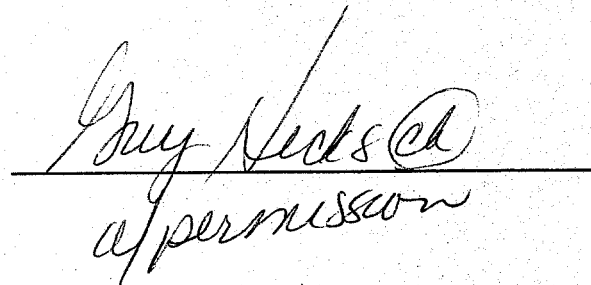 Greg Hicks ca
w/permission